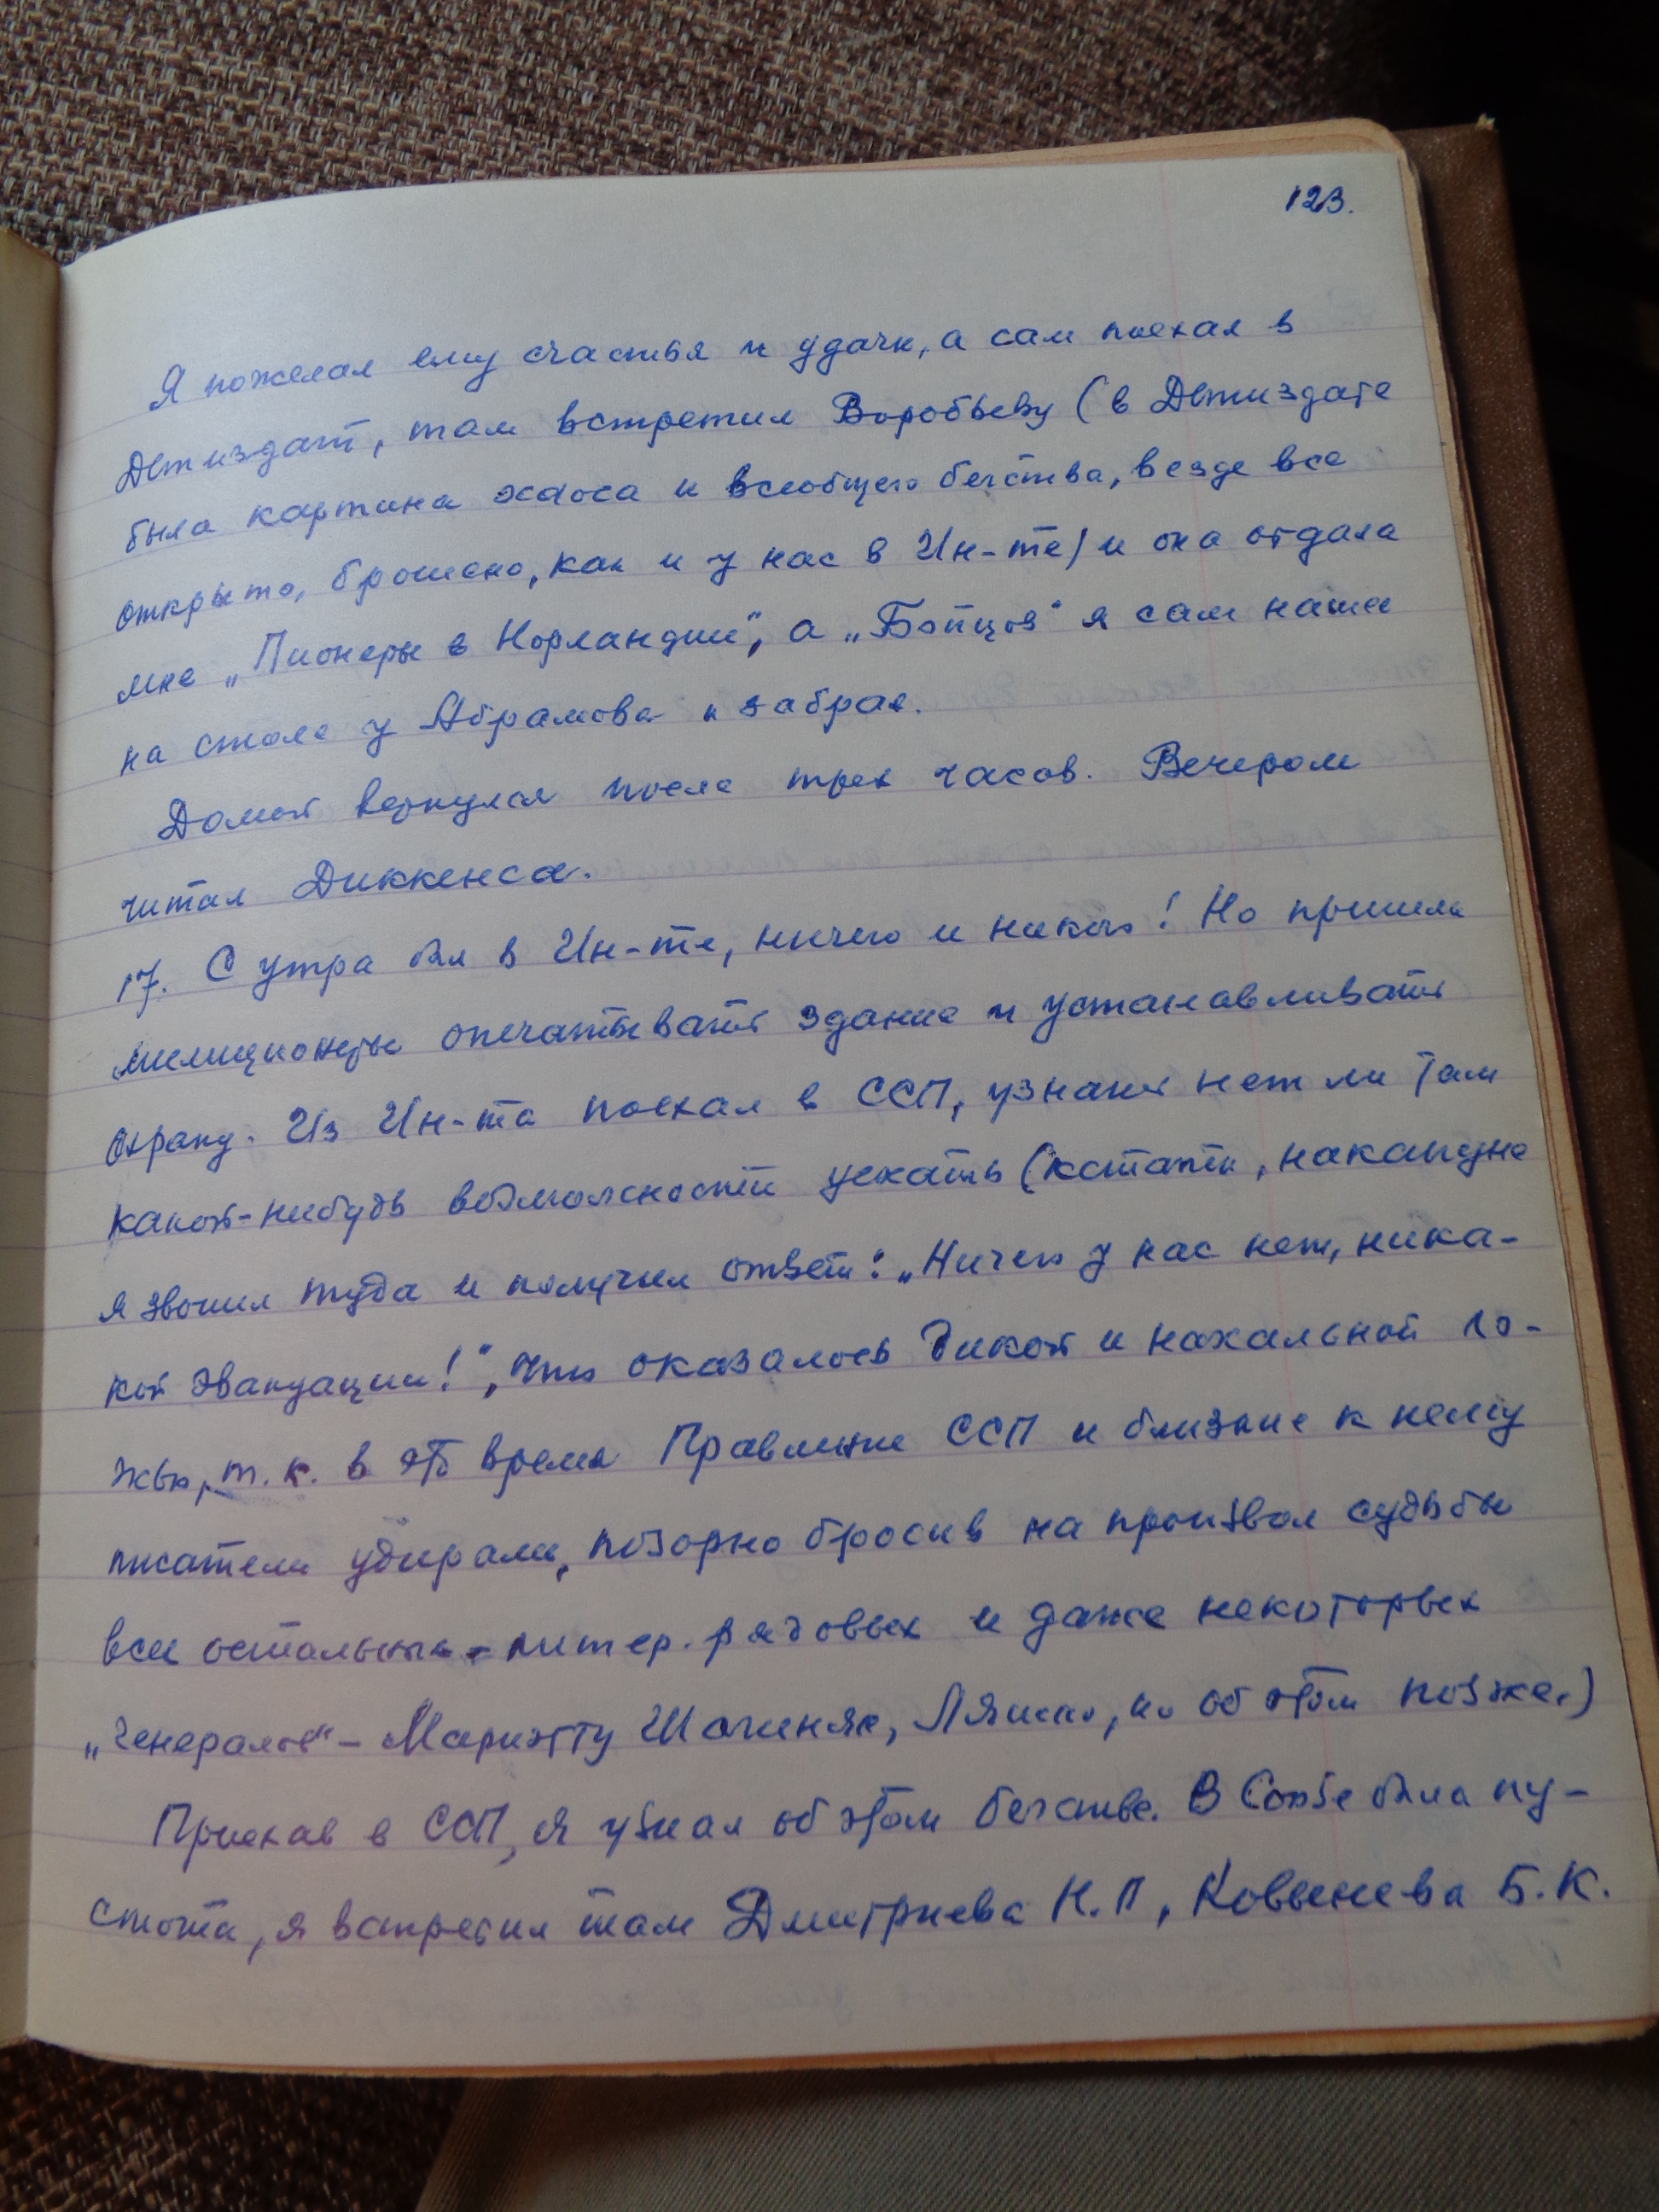 123.
Я пожелал ему счастья и удачи, а сам поехал в
Детиздат, там встретил Воробьеву (в Детиздате
была картина хаоса и всеобщего бегства, везде все
открыто, брошено, как и у нас в Ин-те) и она отдала
мне „Пионеры в Норландии", а „Бойцов" я сам нашел
на столе у Абрамова и забрал.
Домой вернулся после трех часов. Вечером
читал Диккенса.
17. С утра был в Ин-те, ничего и никого! Но пришли
милиционеры опечатывать здание и устанавливать
охрану. Из Ин-та поехал в ССП, узнать нет ли там
какой-нибудь возможности уехать (кстати, накануне
я звонил туда и получил ответ: „Ничего у нас нет, ника-
кой эвакуации!", что оказалось дикой и нахальной ло-
жью, т.к. в это время Правление ССП и близкие к нему
писатели удирали, позорно бросив на произвол судьбы
всех остальных - литер. рядовых и даже некоторых
„генералов" – Мариэтту Шагинян, Ляшко, но об этом позже.)
Приехав в ССП, я узнал об этом бегстве. В Союзе была пу-
стота, я встретил там Дмитриева Н.П, Ковынева Б.К.